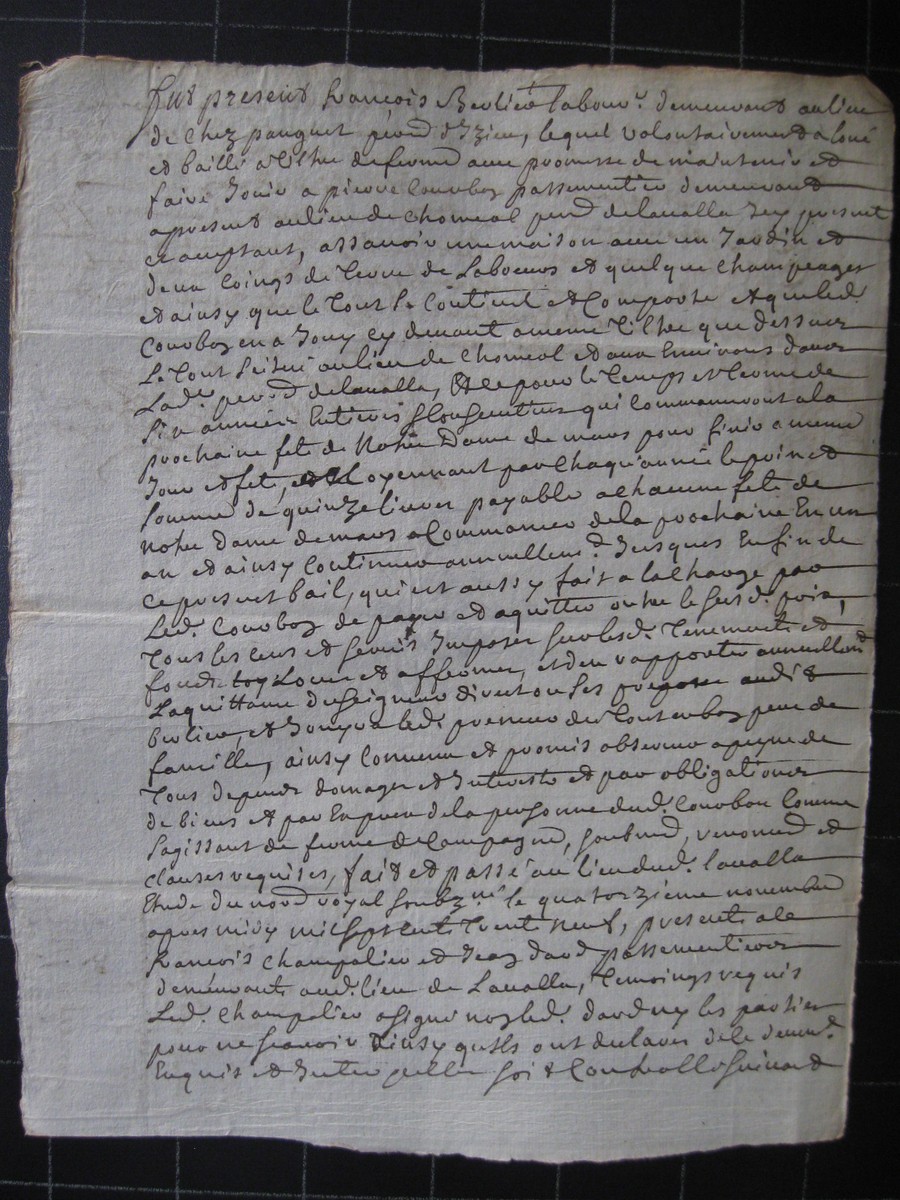 fut present francois Berlier labour.r demeurant au lieu
de chez pauquet parr. d'Izieu, lequel volontairement a loué
et baillé a tiltre de ferme avec promesse de maintenir et
faire Jouir a pierre Courbon passementier demeurant
apresent au lieu de Chomeol parr. de Lavalla Icy present
et acceptant, assavoir une maison avec un Jardin et
deux Coings de terre de Labeurs et quelque champeages
et ainsy que le tout se Contient et Comporte et que led.
Courbon en a Jouy cy devant a meme tiltre que dessus
Le tout scitué au lieu de Chomeol et aux Environs dans
Lad. parr. de Lavalla, et ce pour le temps et terme de
six années Entieres et Consecutives qui Commanceront a la
prochaine fete de Notre Dame de mars pour finir a meme
Jour et fete, et Moyennant par chaqu'année le prix et
somme de quinze livres payable a chacune fete de
notre Dame de mars a Commancer de la prochaine En un
an et ainsy Continuer annuellem.t Jusques Enfin de
ce present bail, qui est aussy fait a la charge par
Led. Courbon de payer et aquitter outre le susd. prix,
tous les cens et servis Imposes sur lesd. tenements et
fonds Loués et affermes, et d'en rapporter annuellem.t
Laquittance du seigneur direct ou ses audit
berlier, et Jouyra led. preneur du tout en bon pere de
famille, ainsy Convenu et promis observer a peyne de
tous depens domages et Interests et par obligation
de biens et par Emprison de la personne dud. Courbon Comme
sagissant de ferme de Campagne, soubmis, renonces et
clauses requises, fait et passé au lieu dud. lavalla
Etude du not. royal soubz.né le quatorzieme novembre
apres midy mil sept cents trente neuf, presents a ce
francois champalier et Jean dard passementiers
demeurants aud. lieu de Lavalla, temoings requis
Led. champalier a signé non led. dard ny les parties
pour ne scavoir ainsy quils ont declares de ce deuem.t
Enquis et Controllé suivant